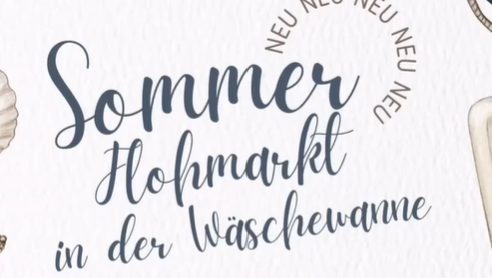 NEU NEU NEU NEU NEU
Sommer
Flohmarkt
in der Wäschewanne